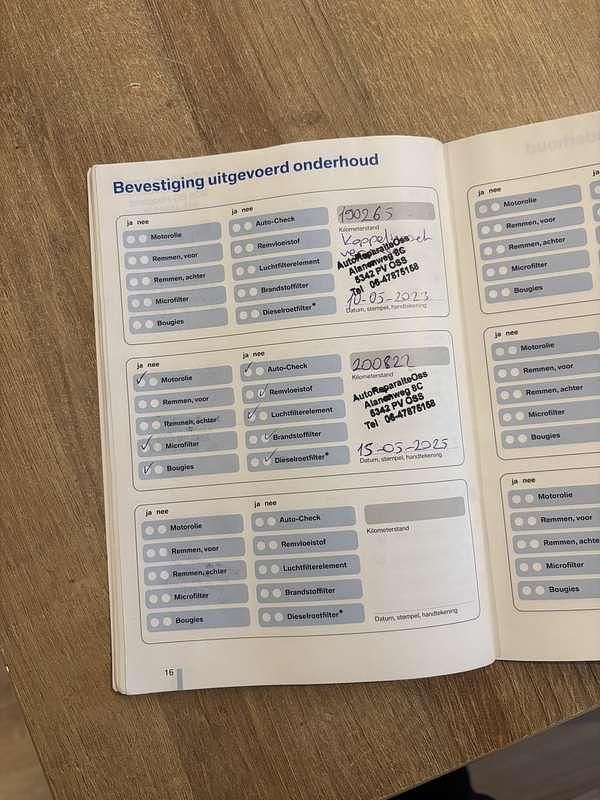 Bevestiging uitgevoerd onderhoud
ja nee
Motorolie
Remmen, voor
Remmen, achter
Microfilter
Bougies
ja nee
Auto-Check
Remvloeistof
Luchtfilterelement
Brandstoffilter
Dieselroetfilter*
190265
Kilometerstand
AutoReparatieOss
Alanenweg 8C
5342 PV OSS
Tel 06-47875158
10-05-2023
Datum, stempel, handtekening
ja nee
Motorolie
Remmen, voor
Remmen, achter
Microfilter
Bougies
ja nee
Auto-Check
Remvloeistof
Luchtfilterelement
Brandstoffilter
Dieselroetfilter*
200822
Kilometerstand
AutoReparatieOss
Alanenweg 8C
5342 PV OSS
Tel 06-47875158
15-05-2025
Datum, stempel, handtekening
ja nee
Motorolie
Remmen, voor
Remmen, achter
Microfilter
Bougies
ja nee
Auto-Check
Remvloeistof
Luchtfilterelement
Brandstoffilter
Dieselroetfilter*
Kilometerstand
Datum, stempel, handtekening
16
ja nee
Motorolie
Remmen, voor
Remmen, achter
Microfilter
Bougies
ja nee
Motorolie
Remmen, voor
Remmen, achter
Microfilter
Bougies
ja nee
Motorolie
Remmen, voor
Remmen, achte
Microfilter
Bougies